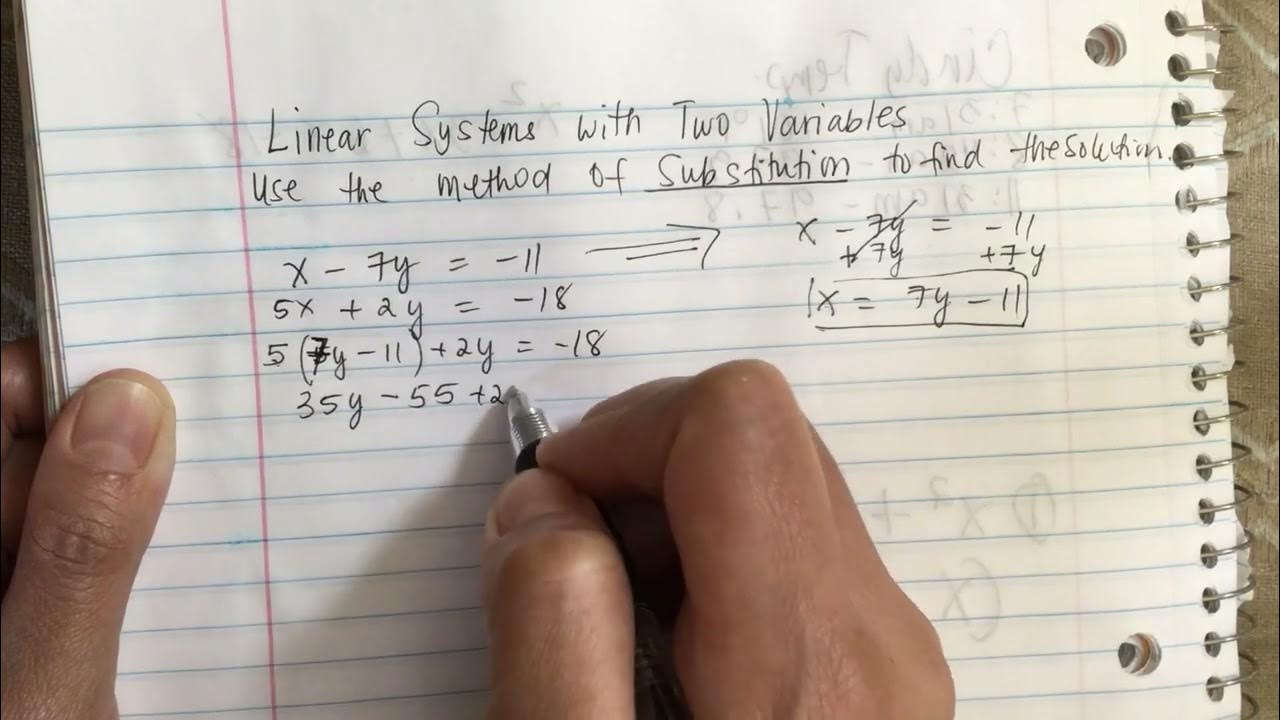 Linear Systems with Two Variables
Use the method of Substitution to find the solution.
x - 7y = -11
5x + 2y = -18
5(7y - 11) + 2y = -18
35y - 55 + 2
x - 7y = -11
+ 7y +7y
x = 7y - 11